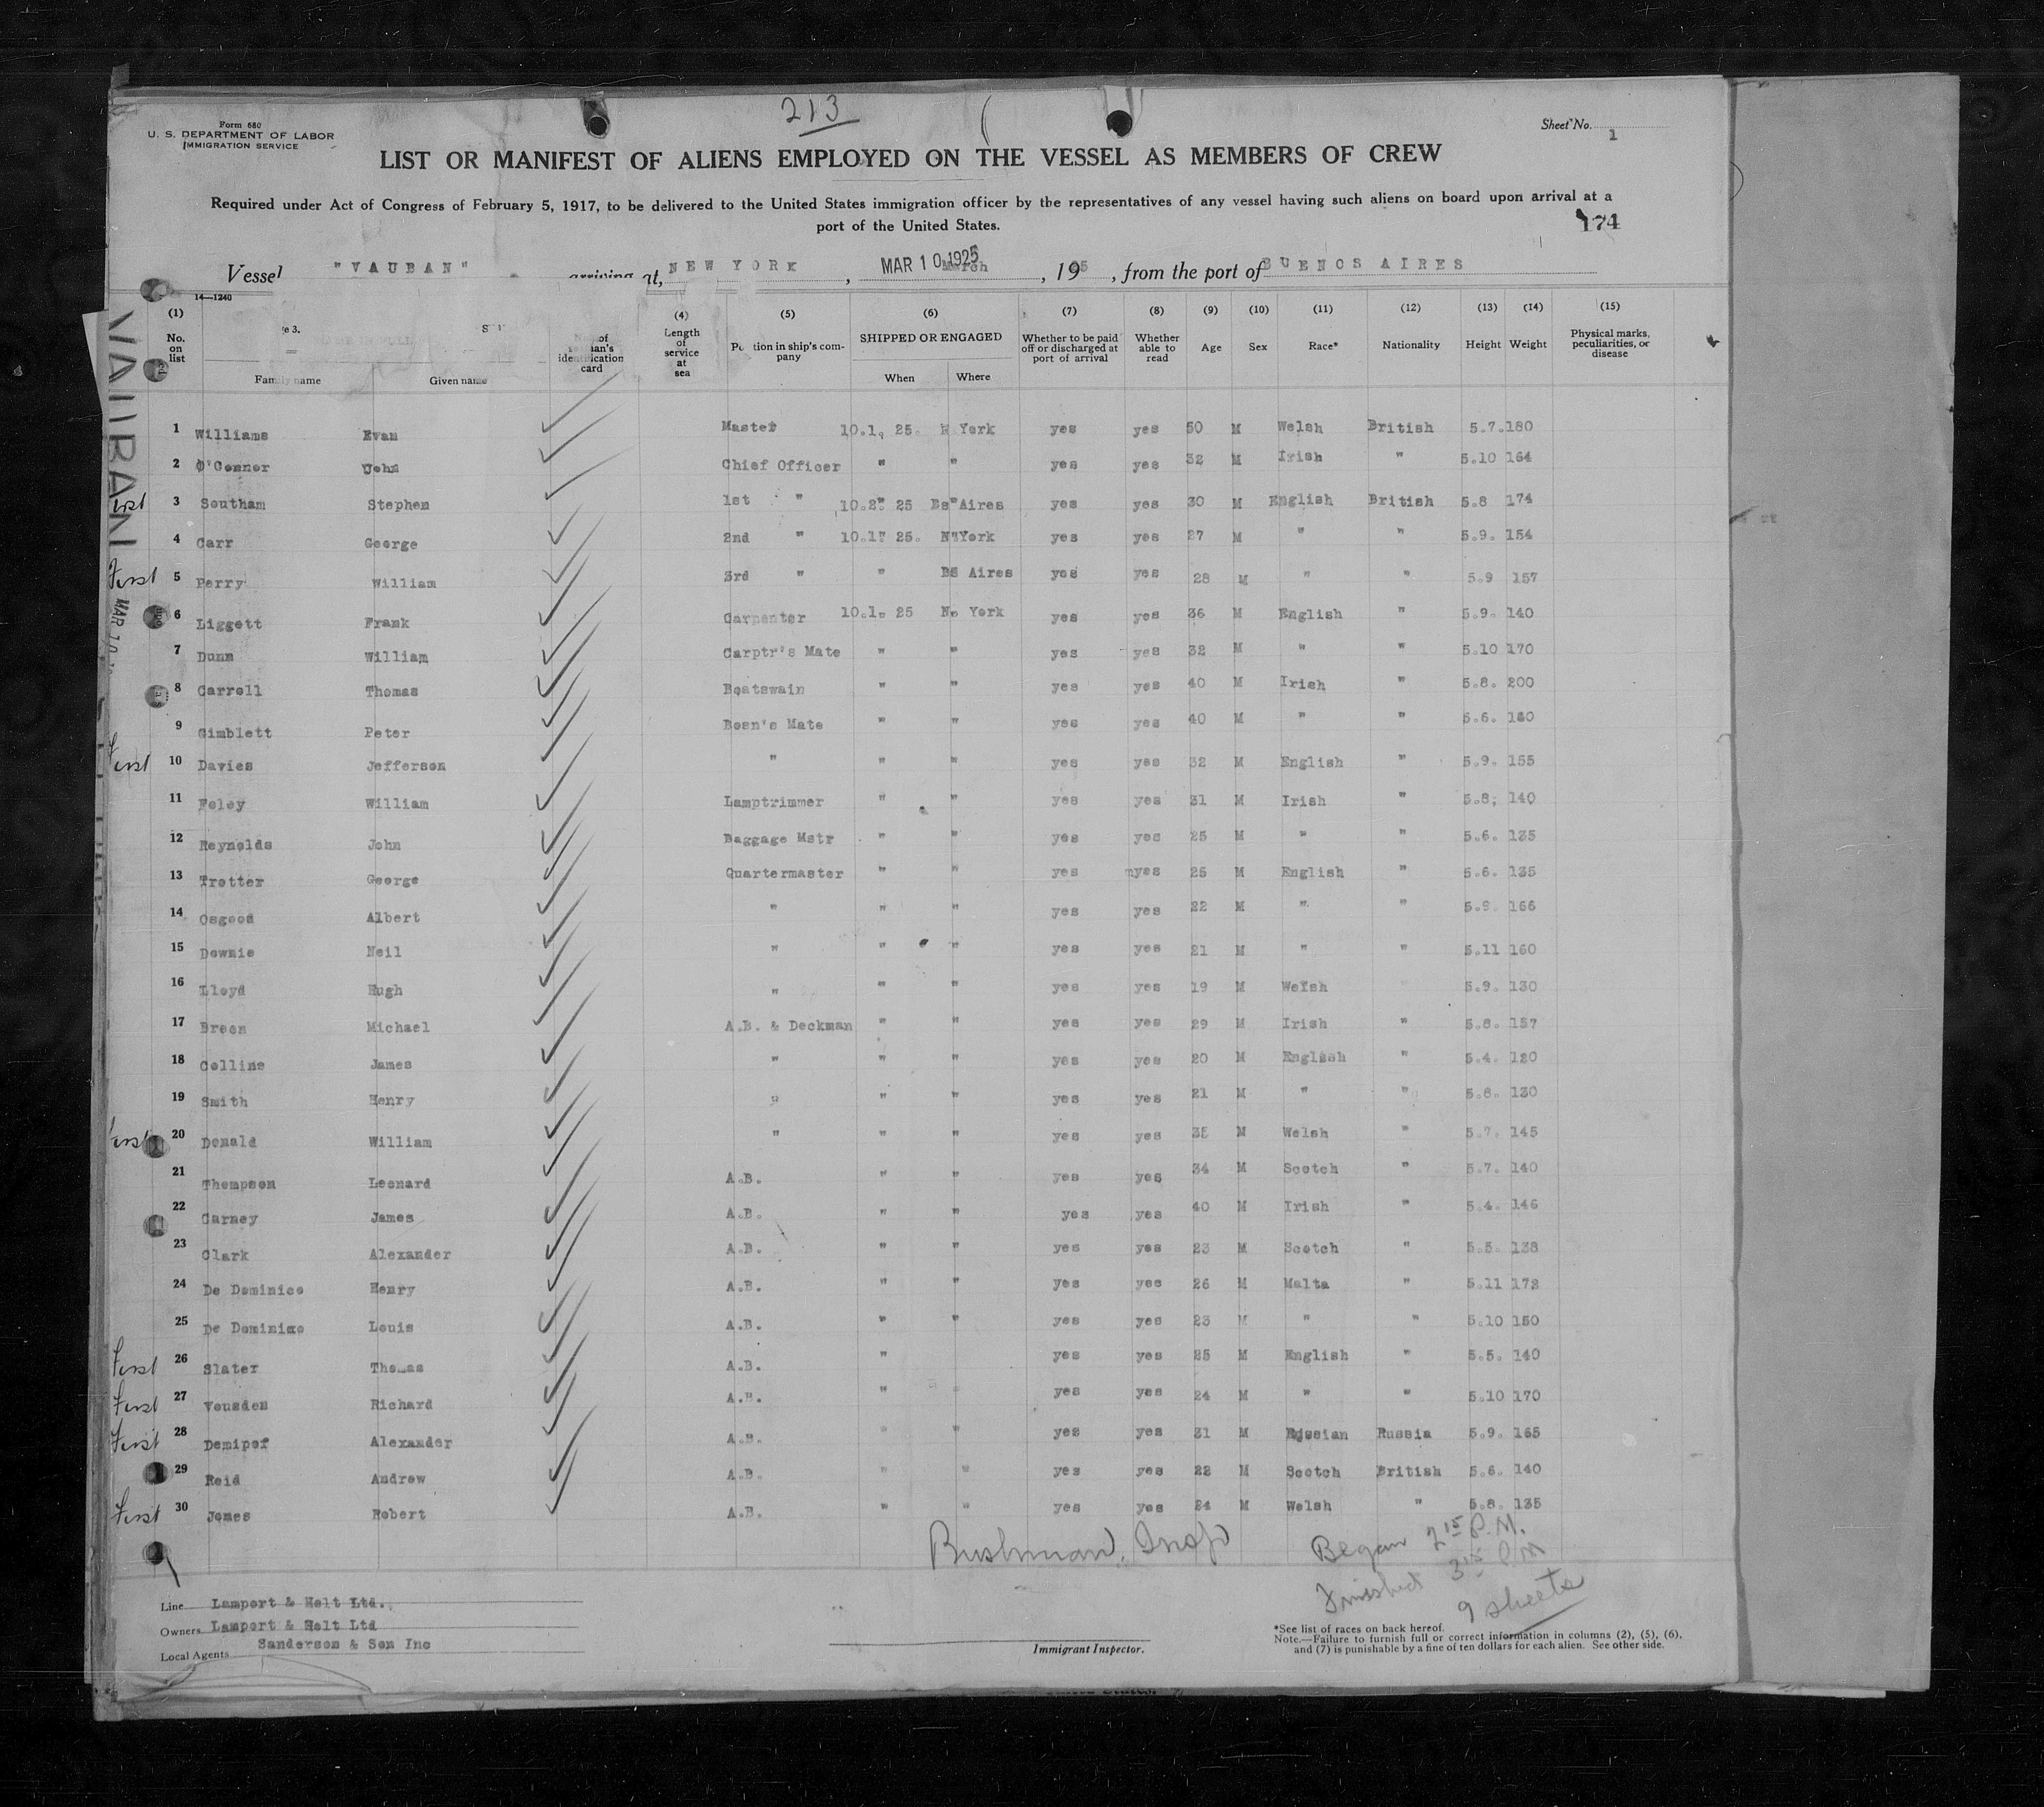 213
Form 680
U. S. DEPARTMENT OF LABOR
IMMIGRATION SERVICE
Sheet No. 1
LIST OR MANIFEST OF ALIENS EMPLOYED ON THE VESSEL AS MEMBERS OF CREW
Required under Act of Congress of February 5, 1917, to be delivered to the United States immigration officer by the representatives of any vessel having such aliens on board upon arrival at a
port of the United States.
174
Vessel "VAUBAN" arriving at, NEW YORK, MAR 10 1925 March, 1925, from the port of BUENOS AIRES
14—1240
(1) (4) (5) (6) (7) (8) (9) (10) (11) (12) (13) (14) (15)
No. on list Family name Given name identification card Length of service at sea Position in ship's company SHIPPED OR ENGAGED When Where Whether to be paid off or discharged at port of arrival Whether able to read Age Sex Race* Nationality Height Weight Physical marks, peculiarities, or disease
1 Williams Evan Master 10.1. 25. N York yes yes 50 M Welsh British 5.7. 180
2 O'Connor John Chief Officer " " yes yes 32 M Irish " 5.10 164
3 Southam Stephen 1st " 10.2" 25 Bs"Aires yes yes 30 M English British 5.8 174
4 Carr George 2nd " 10.1" 25. N"York yes yes 27 M " " 5.9. 154
First 5 Perry William 3rd " " Bs Aires yes yes 28 M " " 5.9 157
6 Liggett Frank Carpenter 10.1. 25 N. York yes yes 36 M English " 5.9. 140
7 Dunn William Carptr's Mate " " yes yes 32 M " " 5.10 170
8 Carroll Thomas Boatswain " " yes yes 40 M Irish " 5.8. 200
9 Gimblett Peter Bosn's Mate " " yes yes 40 M " " 5.6.
First 10 Davies Jefferson " " " yes yes 32 M English " 5.9. 155
11 Foley William Lamptrimmer " " yes yes 31 M Irish " 5.8; 140
12 Reynolds John Baggage Mstr " " yes yes 25 M " " 5.6. 135
13 Trotter George Quartermaster " " yes yes 25 M English " 5.6. 135
14 Osgood Albert " " " yes yes 22 M " " 5.9. 166
15 Downie Neil " " " yes yes 21 M " " 5.11 160
16 Lloyd Hugh " " " yes yes 19 M Welsh 5.9. 130
17 Breen Michael A.B. & Deckman " " yes yes 29 M Irish " 5.8. 157
18 Collins James " " " yes yes 20 M English " 5.4. 120
19 Smith Henry " " " yes yes 21 M " " 5.8. 130
First 20 Donald William " " " yes yes 35 M Welsh " 5.7. 145
21 Thompson Leonard A.B. " " yes yes 34 M Scotch " 5.7. 140
22 Carney James A.B. " " yes yes 40 M Irish " 5.4. 146
23 Clark Alexander A.B. " " yes yes 23 M Scotch " 5.5. 138
24 De Dominico Henry A.B. " " yes yes 26 M Malta " 5.11 172
25 De Dominico Louis A.B. " " yes yes 23 M " " 5.10 150
First 26 Slater Thomas A.B. " yes yes 25 M English " 5.5. 140
First 27 Vousden Richard A.B. " " yes yes 24 M " " 5.10 170
First 28 Demipof Alexander A.B. " " yes yes 31 M Russian Russia 5.9. 165
29 Reid Andrew A.B. " " yes yes 22 M Scotch British 5.6. 140
First 30 Jones Robert A.B. " " yes yes 24 M Welsh " 5.8. 135
Bushman, Insp
Began 2 15 P.M.
Finished 3 15 P.M
9 sheets
Line Lamport & Holt Ltd.
Owners Lamport & Holt Ltd
Local Agents Sanderson & Son Inc
Immigrant Inspector.
*See list of races on back hereof.
Note.—Failure to furnish full or correct information in columns (2), (5), (6),
and (7) is punishable by a fine of ten dollars for each alien. See other side.